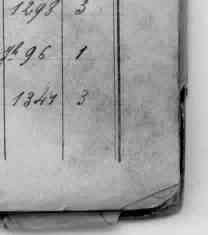 1298 3
96 1
1341 3